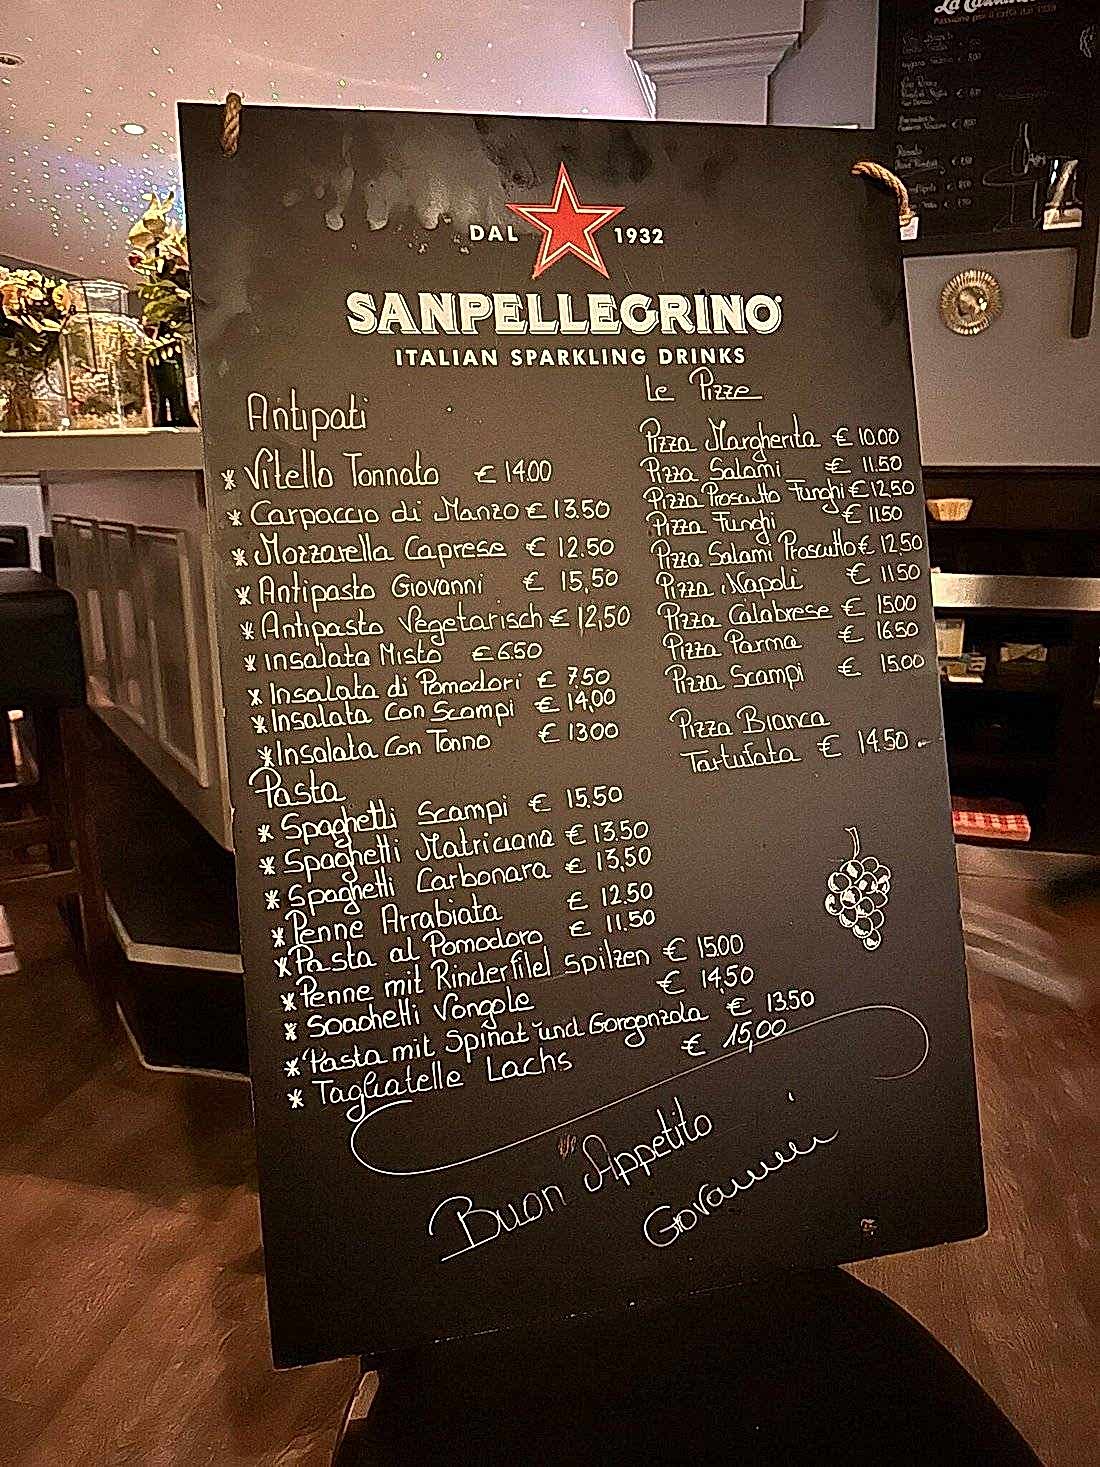 DAL 1932
SANPELLEGRINO
ITALIAN SPARKLING DRINKS
Antipati
* Vitello Tonnato € 14.00
* Carpaccio di Manzo € 13.50
* Mozzarella Caprese € 12.50
* Antipasto Giovanni € 15,50
* Antipasto Vegetarisch € 12,50
* Insalata Misto € 6.50
* Insalata di Pomodori € 7.50
* Insalata Con Scampi € 14,00
* Insalata Con Tonno € 1300
Pasta
* Spaghetti Scampi € 15.50
* Spaghetti Matriciana € 13.50
* Spaghetti Carbonara € 13,50
* Penne Arrabiata € 12.50
* Pasta al Pomodoro € 11.50
* Penne mit Rinderfilel Spilzen € 15.00
* Spaghetti Vongole € 14,50
* Pasta mit Spinat und Gorgonzola € 13.50
* Tagliatelle Lachs € 15,00
Le Pizze
Pizza Margherita € 10.00
Pizza Salami € 11.50
Pizza Proscutto Funghi € 12.50
Pizza Funghi € 11.50
Pizza Salami Proscutto € 12,50
Pizza Napoli € 11.50
Pizza Calabrese € 15.00
Pizza Parma € 16.50
Pizza Scampi € 15.00
Pizza Bianca
Tartufata € 14.50
Buon Appetito
Giovanni